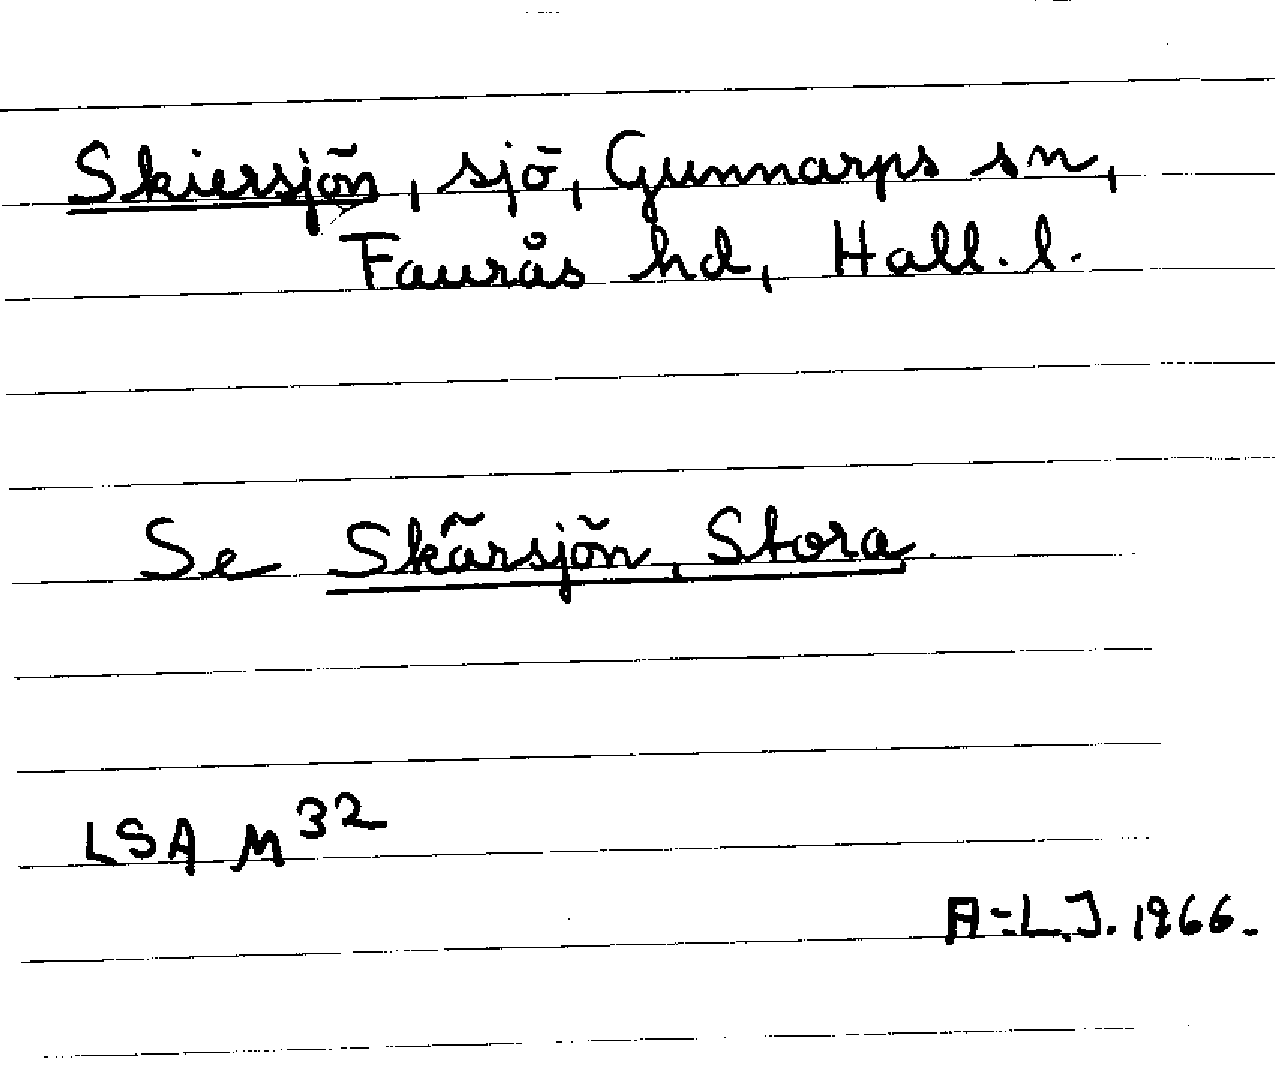 Skiersjön, sjö, Gunnarps sn,
Faurås hd, Hall. l.
Se Skärsjön, Stora.
LSA M32
A-L.J. 1966.